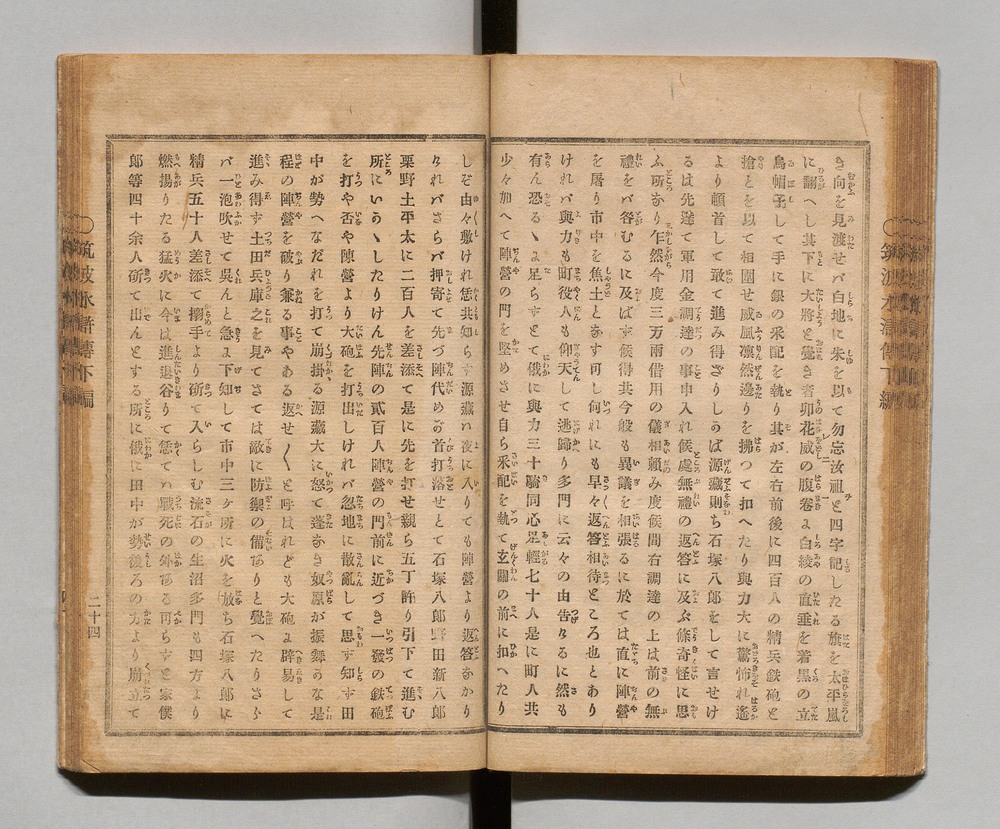 き向を見渡せバ白地に朱を以て勿忘汝祖と四字記したる旗を太平嵐
に翻へし其下に大將と覺き者卯花威の腹卷よ白綾の直垂を着黒の立
烏帽子して手に銀の采配を執り其が左右前後に四百人の精兵鉄砲と
搶とを以て相圍せ威風凛然邊りを拂つて扣へたり與力大に驚怖れ遙
より頓首して敢て進み得ざりしうば源藏則ち石塚八郎をして言せけ
るは先達て軍用金調達の事申入れ候處無禮の返答に及ぶ條奇怪に思
ふ所なり乍然今度三万兩借用の儀相頼み度候間右調達の上は前の無
禮をバ咎むるに及ばず候得共今般も異議を相張るに於ては直に陣營
を屠り市中を焦土となす可し何れにも早々返答相待ところ也とあり
けれバ與力も町役人も仰天して逃歸り多門に云々の由告けるに然も
有ん恐るゝよ足らずとて俄に與力三十騎同心足輕七十人是に町人共
少々加へて陣營の門を堅めさせ自ら采配を執て玄關の前に扣へたり
しぞ由々敷けれ恁共知らず源藏ハ夜に入りても陣營より返答なかり
けれバさらバ押寄て先づ陣代めの首打落せとて石塚八郎野田新八郎
栗野土平太に二百人を差添て是に先を打せ親ら五丁許り引下て進む
所にいうゝしたりけん先陣の貳百人陣營の門前に近づき一發の鉄砲
を打や否や陣營より大砲を打出しけれバ忽地に散亂して思ず知ず田
中が勢へなだれを打て崩掛る源藏大に怒て蓬なき奴原が振舞うな是
程の陣營を破り兼る事やある返せ〱と呼はれども大砲よ辟易して
進み得ず土田兵庫之を見てさては敵に防禦の備ありと覺へたりさら
バ一泡吹せて呉んと急よ下知して市中三ヶ所に火を放ち石塚八郎に
精兵五十人差添て搦手より斫て入らしむ流石の生沼多門も四方より
燃揚りたる猛火に今は進退谷りて恁てハ戰死の外ある可らずと家僕
郎等四十余人斫て出んとする所に俄に田中が勢後ろの方より崩立て
筑波水滸傳下編
二十四
筑波水滸傳下編